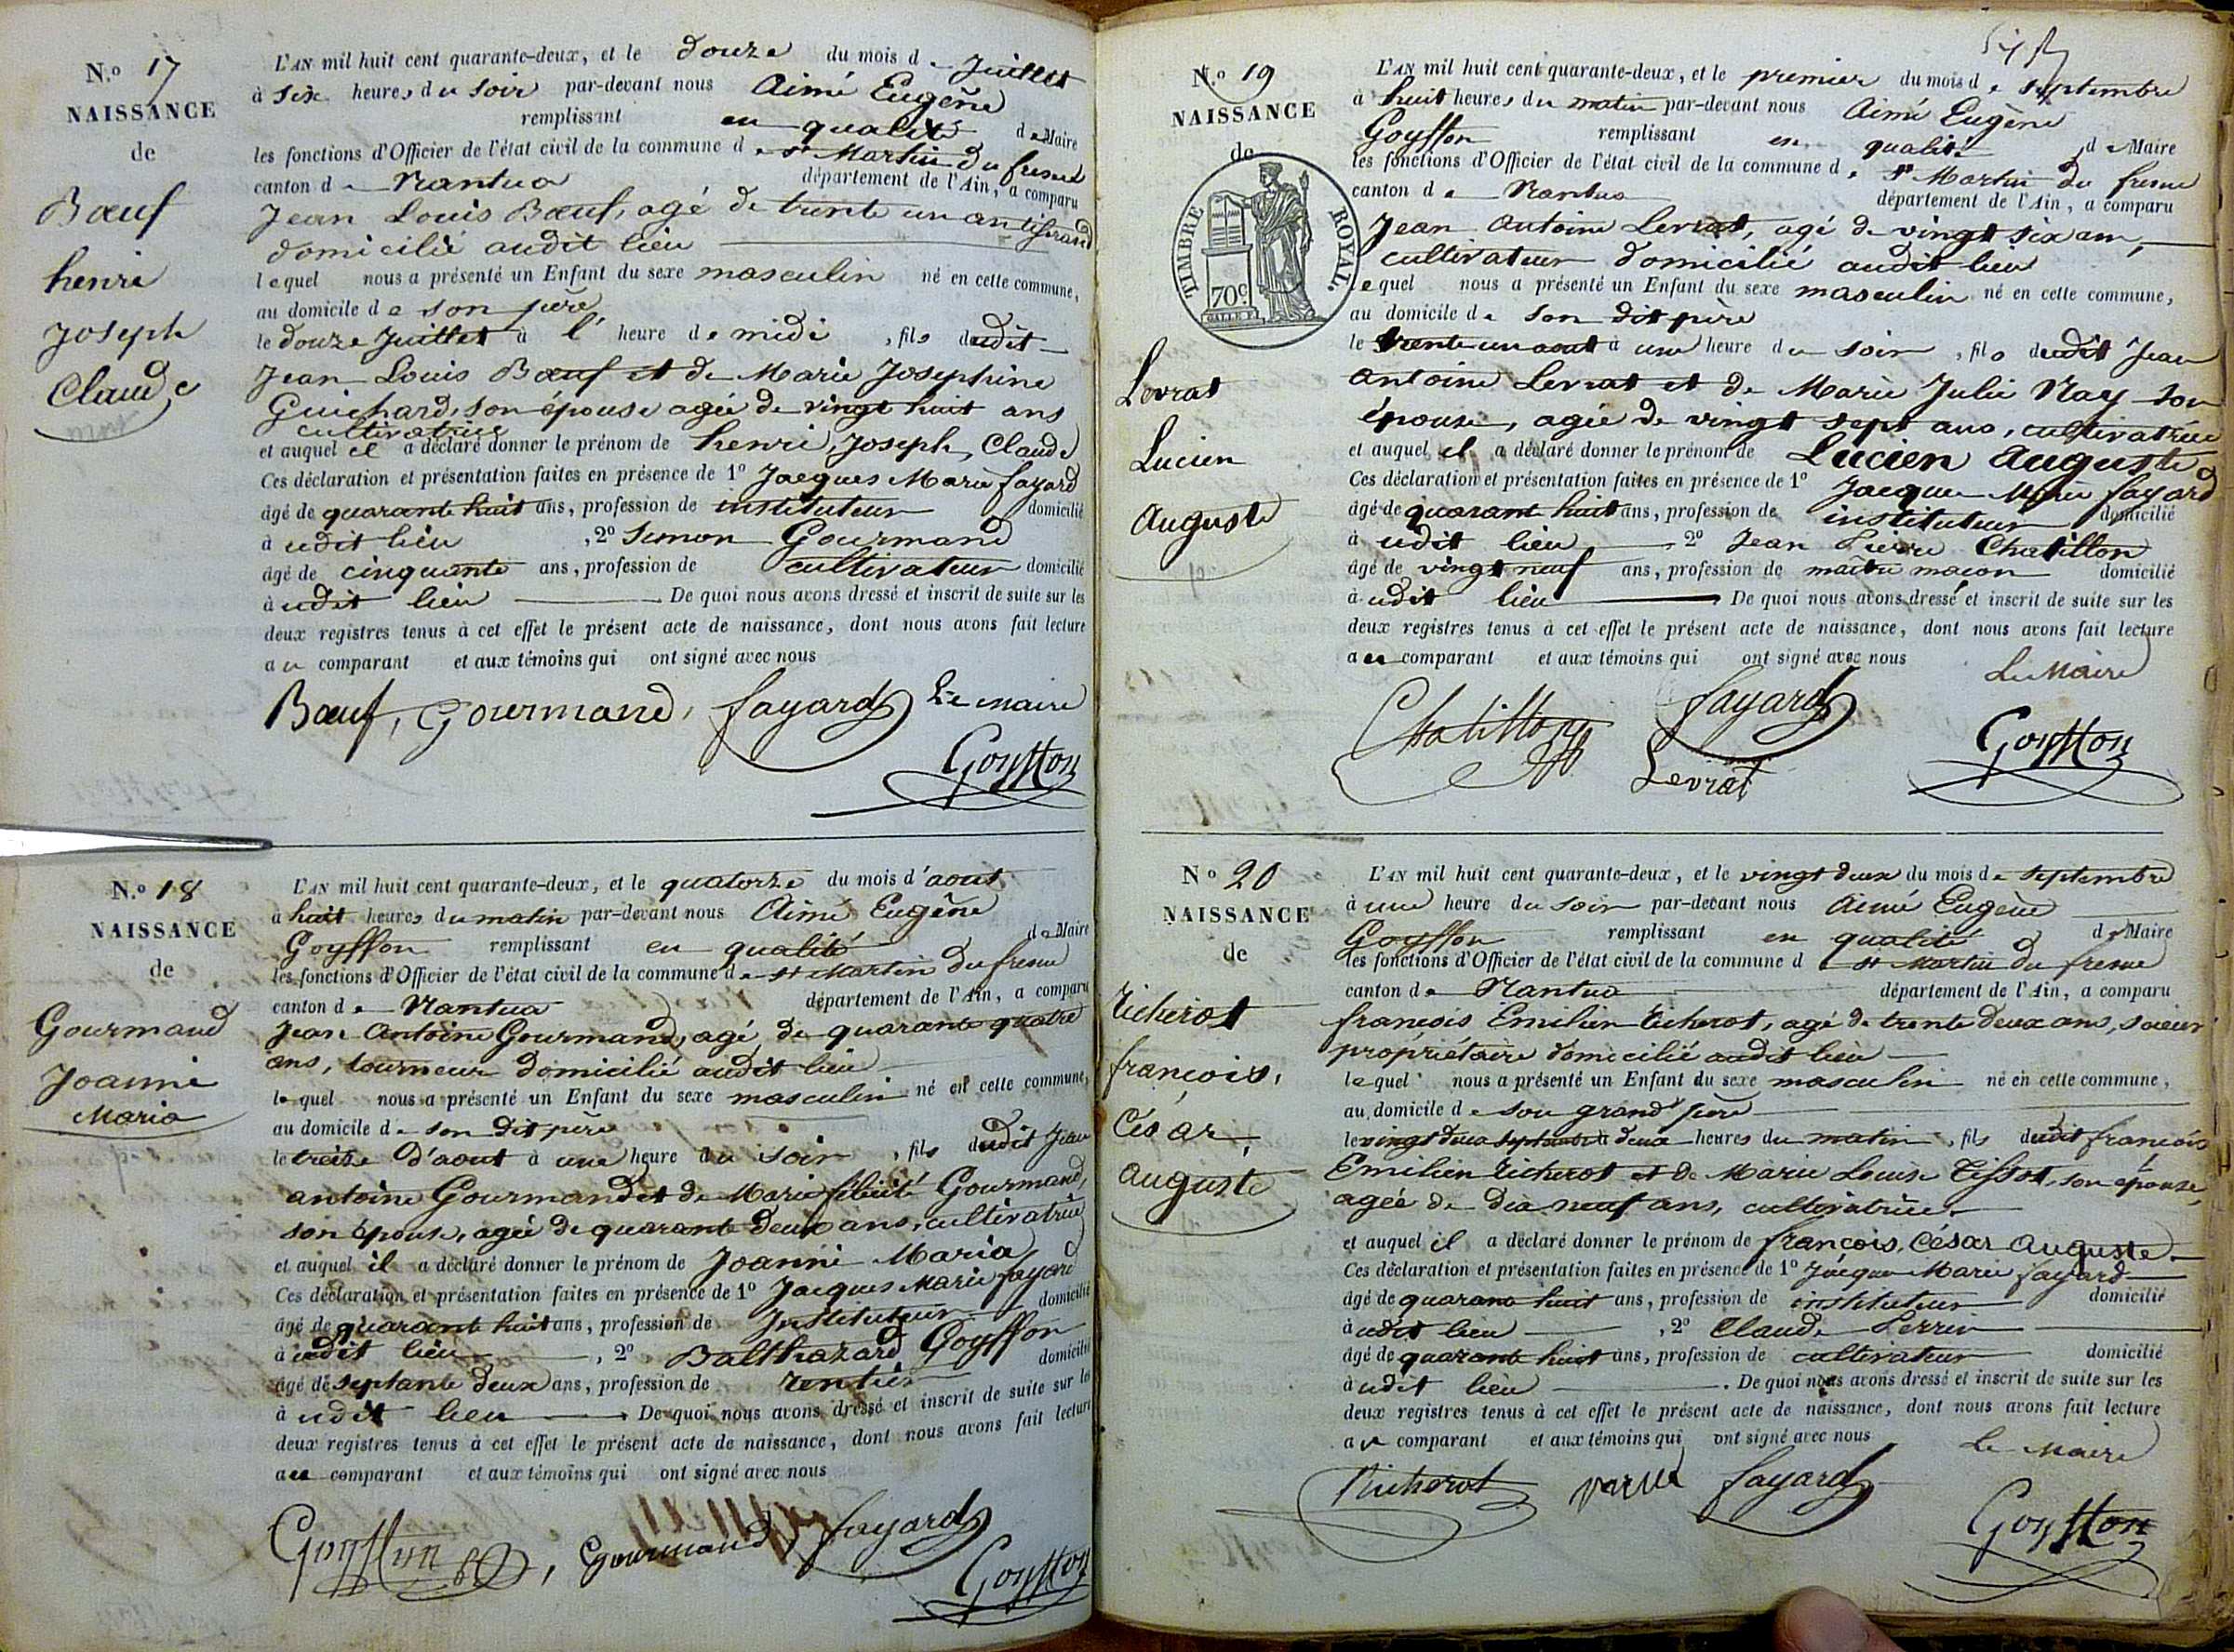 N.º 17
NAISSANCE
de
Bœuf
henri
Joseph
Claude
L'AN mil huit cent quarante-deux, et le douze du mois de Juillet
à six heures du soir par-devant nous Aimé Eugène
remplissant en qualité de Maire
les fonctions d'Officier de l'état civil de la commune de St Martin du fresne
canton de Nantua département de l'Ain, a comparu
Jean Louis Bœuf, agé de trente un an tisserand
domicilié audit lieu
lequel nous a présenté un Enfant du sexe masculin né en cette commune,
au domicile de son père
le douze Juillet à l' heure de midi, fils dudit
Jean Louis Bœuf et de Marie Josephine
Guichard, son épouse agée de vingt huit ans
cultivatrice
et auquel il a déclaré donner le prénom de henri, Joseph, Claude
Ces déclaration et présentation faites en présence de 1º Jacques Marie fayard
âgé de quarante huit ans, profession de instituteur domicilié
à udit lieu, 2º Simon Gourmand
âgé de cinquante ans, profession de cultivateur domicilié
à udit lieu De quoi nous avons dressé et inscrit de suite sur les
deux registres tenus à cet effet le présent acte de naissance, dont nous avons fait lecture
au comparant et aux témoins qui ont signé avec nous
Bœuf, Gourmand, fayard Le Maire
Goyffon
N.º 18
NAISSANCE
de
Gourmand
Joanni
Maria
L'AN mil huit cent quarante-deux, et le quatorze du mois d'aout
à huit heures du matin par-devant nous Aimé Eugène
Goyffon remplissant en qualité de Maire
les fonctions d'Officier de l'état civil de la commune de st Martin du fresne
canton de Nantua département de l'Ain, a comparu
Jean Antoine Gourmand, agé de quarante quatre
ans, tourneur domicilié audit lieu
lequel nous a présenté un Enfant du sexe masculin né en cette commune,
au domicile de son dit père
le treize d'aout à une heure du soir, fils dudit Jean
antoine Gourmand et de Marie félicité Gourmand,
son épouse, agée de quarante deux ans, cultivatrice
et auquel il a déclaré donner le prénom de Joanni Maria
Ces déclaration et présentation faites en présence de 1º Jacques Marie fayard
âgé de quarante huit ans, profession de Instituteur domicilié
à udit lieu, 2º Balthazard Goyffon
âgé de septante deux ans, profession de rentier domicilié
à udit lieu De quoi nous avons dressé et inscrit de suite sur les
deux registres tenus à cet effet le présent acte de naissance, dont nous avons fait lecture
au comparant et aux témoins qui ont signé avec nous
Goyffon, Gourmand, fayard
Goyffon
N.º 19
NAISSANCE
de
TIMBRE ROYAL
70 c.
Levrat
Lucien
Auguste
L'AN mil huit cent quarante-deux, et le premier du mois de septembre
à huit heures du matin par-devant nous Aimé Eugène
Goyffon remplissant en qualité de Maire
les fonctions d'Officier de l'état civil de la commune de St Martin du fresne
canton de Nantua département de l'Ain, a comparu
Jean Antoine Levrat, agé de vingt six ans,
cultivateur domicilié audit lieu
lequel nous a présenté un Enfant du sexe masculin né en cette commune,
au domicile de son dit père
le trente un aout à une heure du soir, fils dudit Jean
antoine Levrat et de Marie Julie Nay son
épouse, agée de vingt sept ans, cultivatrice
et auquel il a déclaré donner le prénom de Lucien Auguste
Ces déclaration et présentation faites en présence de 1º Jacques Marie fayard
âgé de quarante huit ans, profession de instituteur domicilié
à udit lieu 2º Jean Pierre Chatillon
âgé de vingt neuf ans, profession de maître maçon domicilié
à udit lieu De quoi nous avons dressé et inscrit de suite sur les
deux registres tenus à cet effet le présent acte de naissance, dont nous avons fait lecture
au comparant et aux témoins qui ont signé avec nous
Le Maire
Chatillon fayard
Levrat Goyffon
Nº 20
NAISSANCE
de
Richerot
françois,
César,
Auguste
L'AN mil huit cent quarante-deux, et le vingt deux du mois de septembre
à une heure du soir par-devant nous Aimé Eugène
Goyffon remplissant en qualité de Maire
les fonctions d'Officier de l'état civil de la commune d st Martin du fresne
canton de Nantua département de l'Ain, a comparu
françois Emilien Richerot, agé de trente deux ans, scieur
propriétaire domicilié audit lieu
lequel nous a présenté un Enfant du sexe masculin né en cette commune,
au domicile de son grand père
le vingt deux septembre à deux heures du matin, fils dudit françois
Emilien Richerot et de Marie Louise Tissot, son épouse,
agée de dix neuf ans, cultivatrice.
et auquel il a déclaré donner le prénom de françois, César Auguste.
Ces déclaration et présentation faites en présence de 1º Jacques Marie fayard
âgé de quarante huit ans, profession de instituteur domicilié
à udit lieu, 2º Claude Perrin
âgé de quarante huit ans, profession de cultivateur domicilié
à udit lieu. De quoi nous avons dressé et inscrit de suite sur les
deux registres tenus à cet effet le présent acte de naissance, dont nous avons fait lecture
au comparant et aux témoins qui ont signé avec nous
Le Maire
Richerot fayard
Goyffon